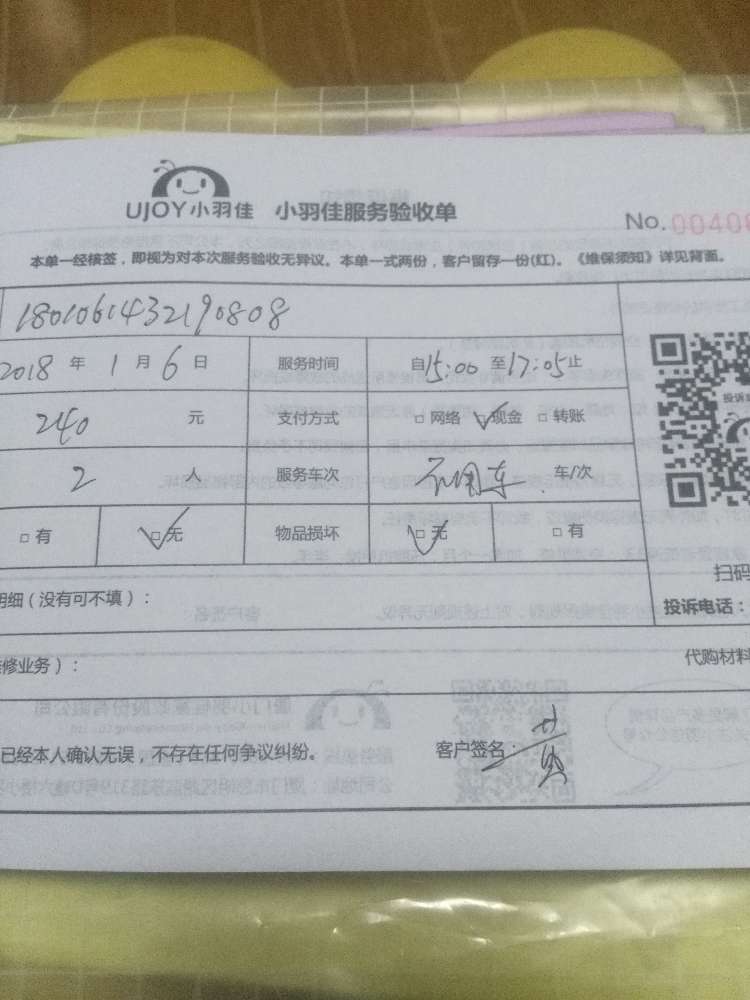 UJOY小羽佳 小羽佳服务验收单
No. 00400
本单一经核签,即视为对本次服务验收无异议。本单一式两份,客户留存一份(红)。《维保须知》详见背面。
1801061432190808
2018 年 1 月 6 日 服务时间 自15:00 至17:05止
240 元 支付方式 □ 网络 ☑现金 □ 转账
2 人 服务车次 不用车 车/次
□ 有 ☑无 物品损坏 ☑无 □ 有
明细(没有可不填):
扫码
投诉电话:
修业务):
代购材料
已经本人确认无误,不存在任何争议纠纷。 客户签名: